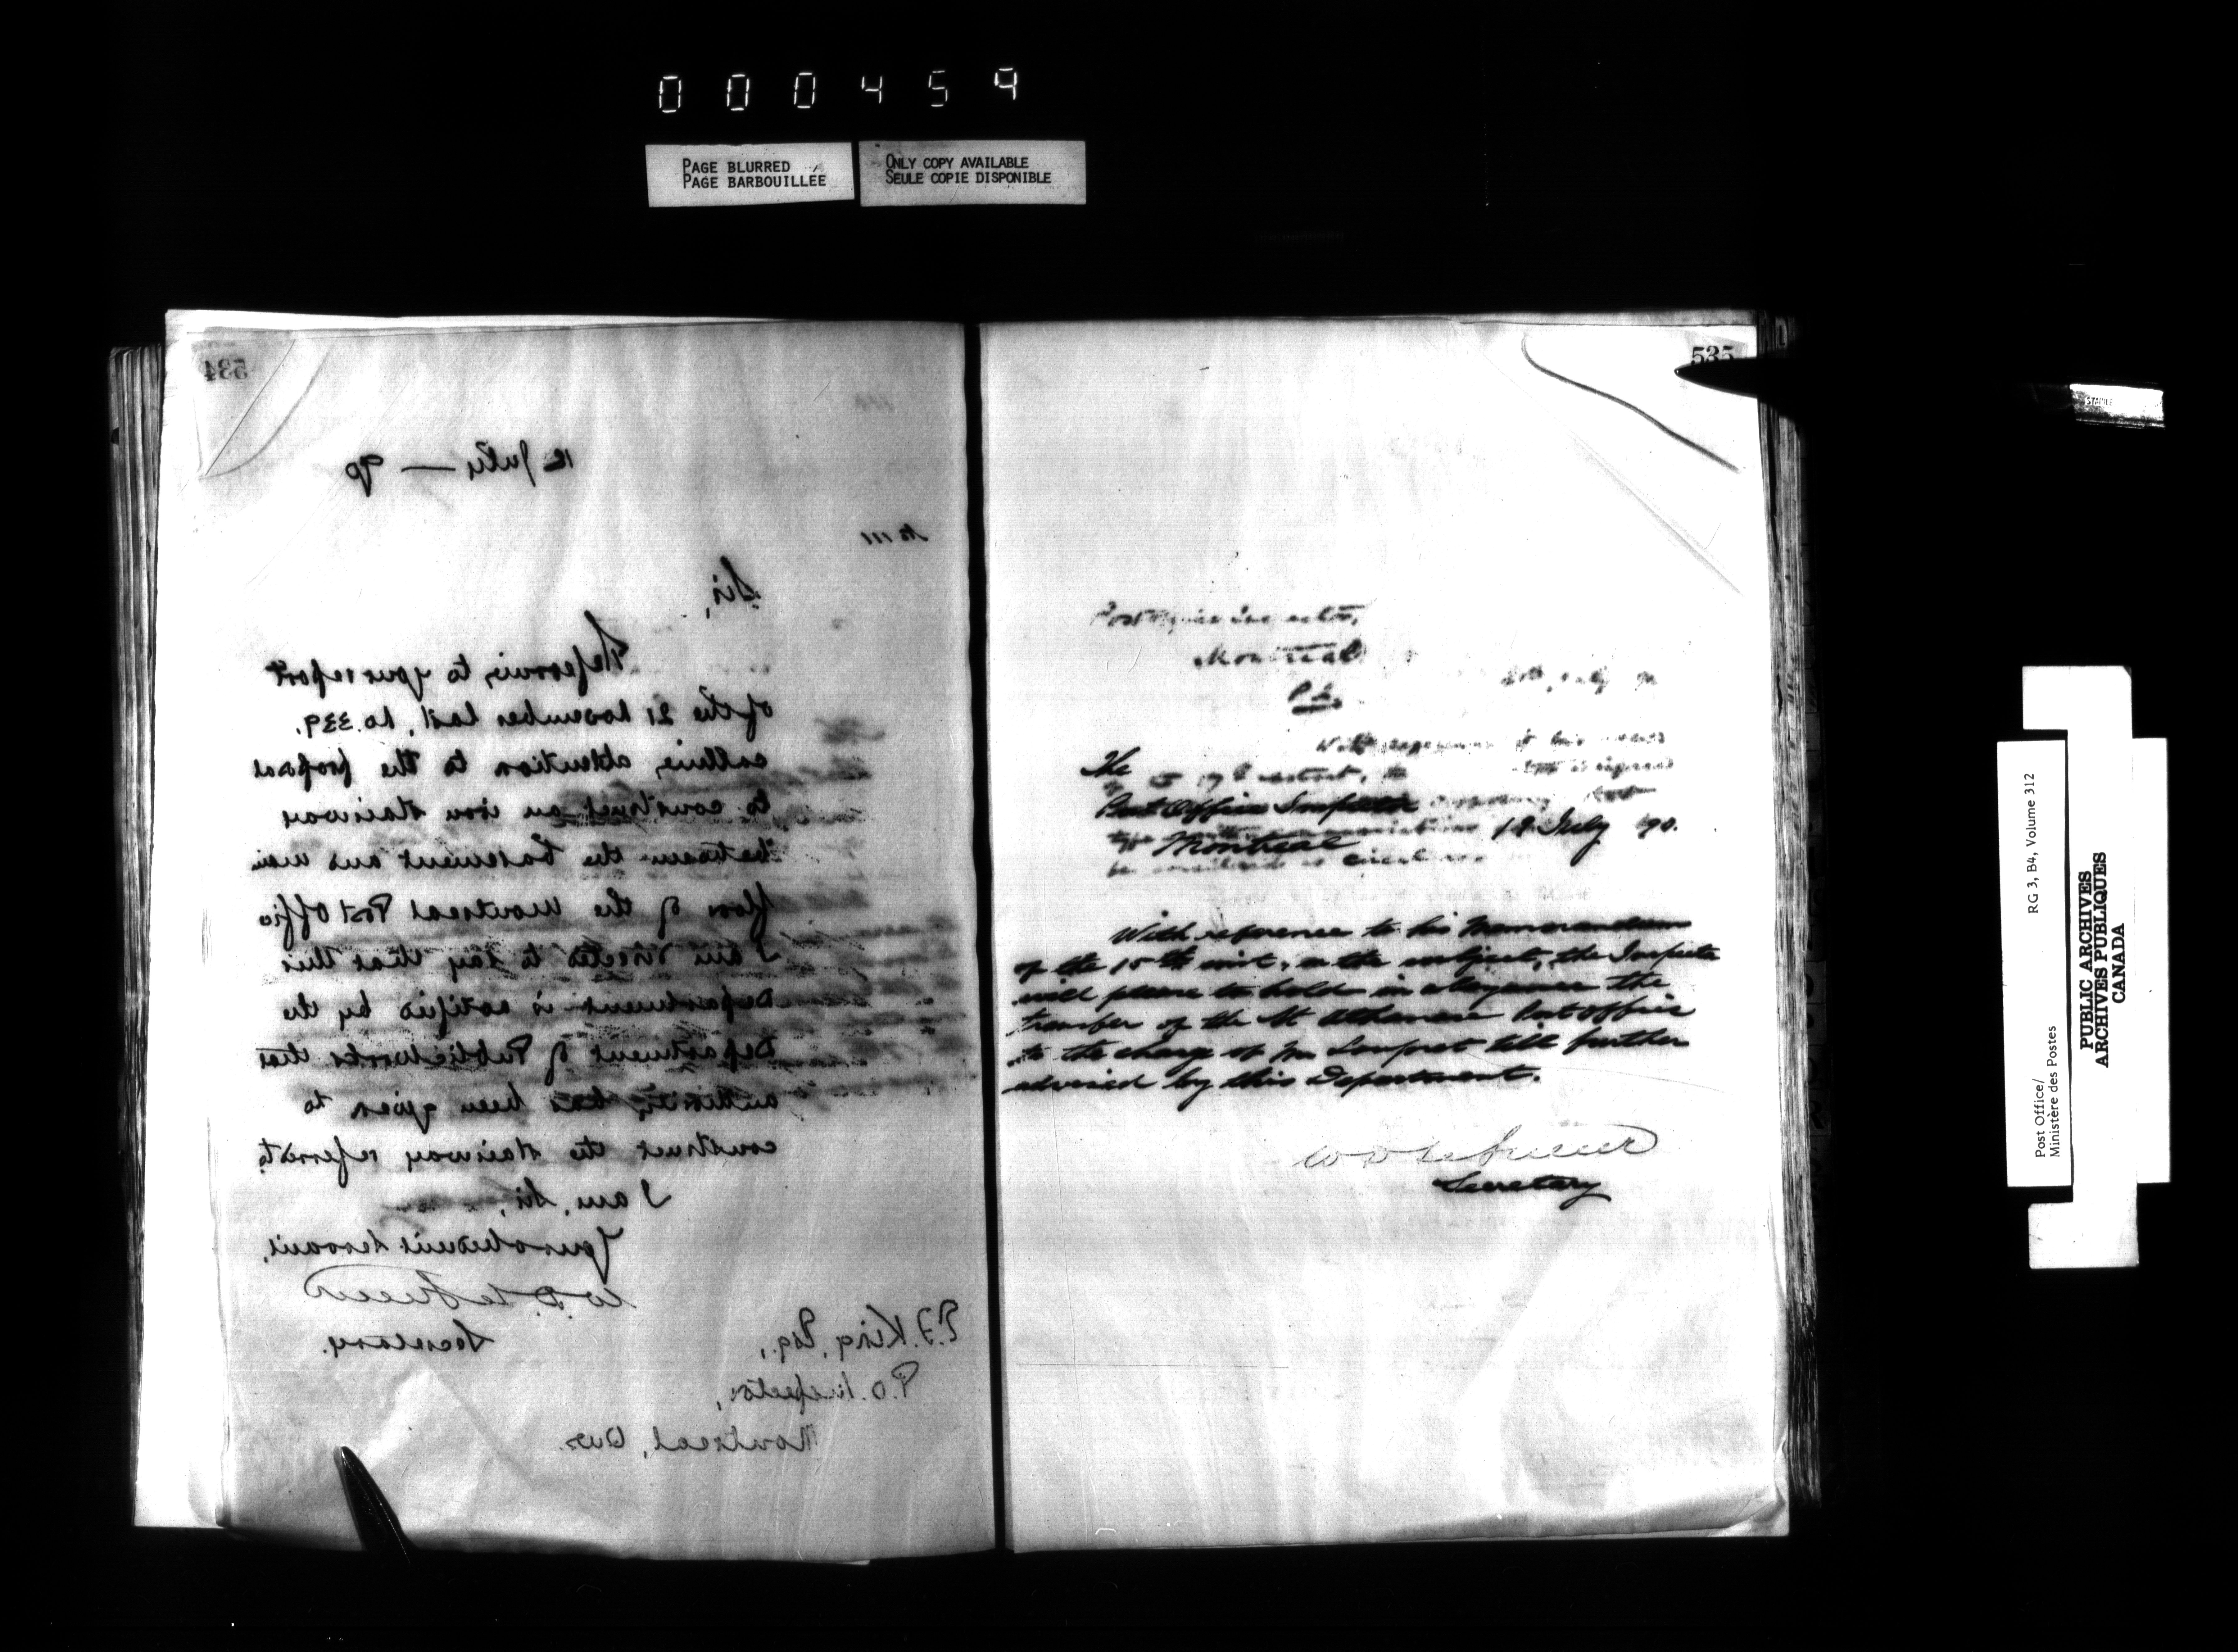 000459
PAGE BLURRED
PAGE BARBOUILLÉE
ONLY COPY AVAILABLE
SEULE COPIE DISPONIBLE
534
12 July — 90
No 111
Sir,
Referring to your report
of the 21 November last, No. 339,
calling attention to the proposal
to construct an iron stairway
between the basement and main
floor of the Montreal Post Office
I am directed to say that this
Department is notified by the
Department of Public Works that
authority has been given to
construct the stairway referred to.
I am, Sir,
Your obedient Servant,
W D LeSueur
Secretary.
E.F. King, Esq.,
P.O. Inspector,
Montreal, Que.
535
Post Office Inspector,
Montreal
P.Q.
July 90
With reference to his
The
Post Office Inspector
Montreal
18 July 90.
be considered as
With reference to his Memorandum
of the 15th inst. on the subject, the Inspector
will please to hold in abeyance the
transfer of the St Athanase Post Office
to the charge of Mr till further
advised by this Department.
W D LeSueur
Secretary
STAINLE
Post Office/
Ministère des Postes
RG 3, B4, Volume 312
PUBLIC ARCHIVES
ARCHIVES PUBLIQUES
CANADA